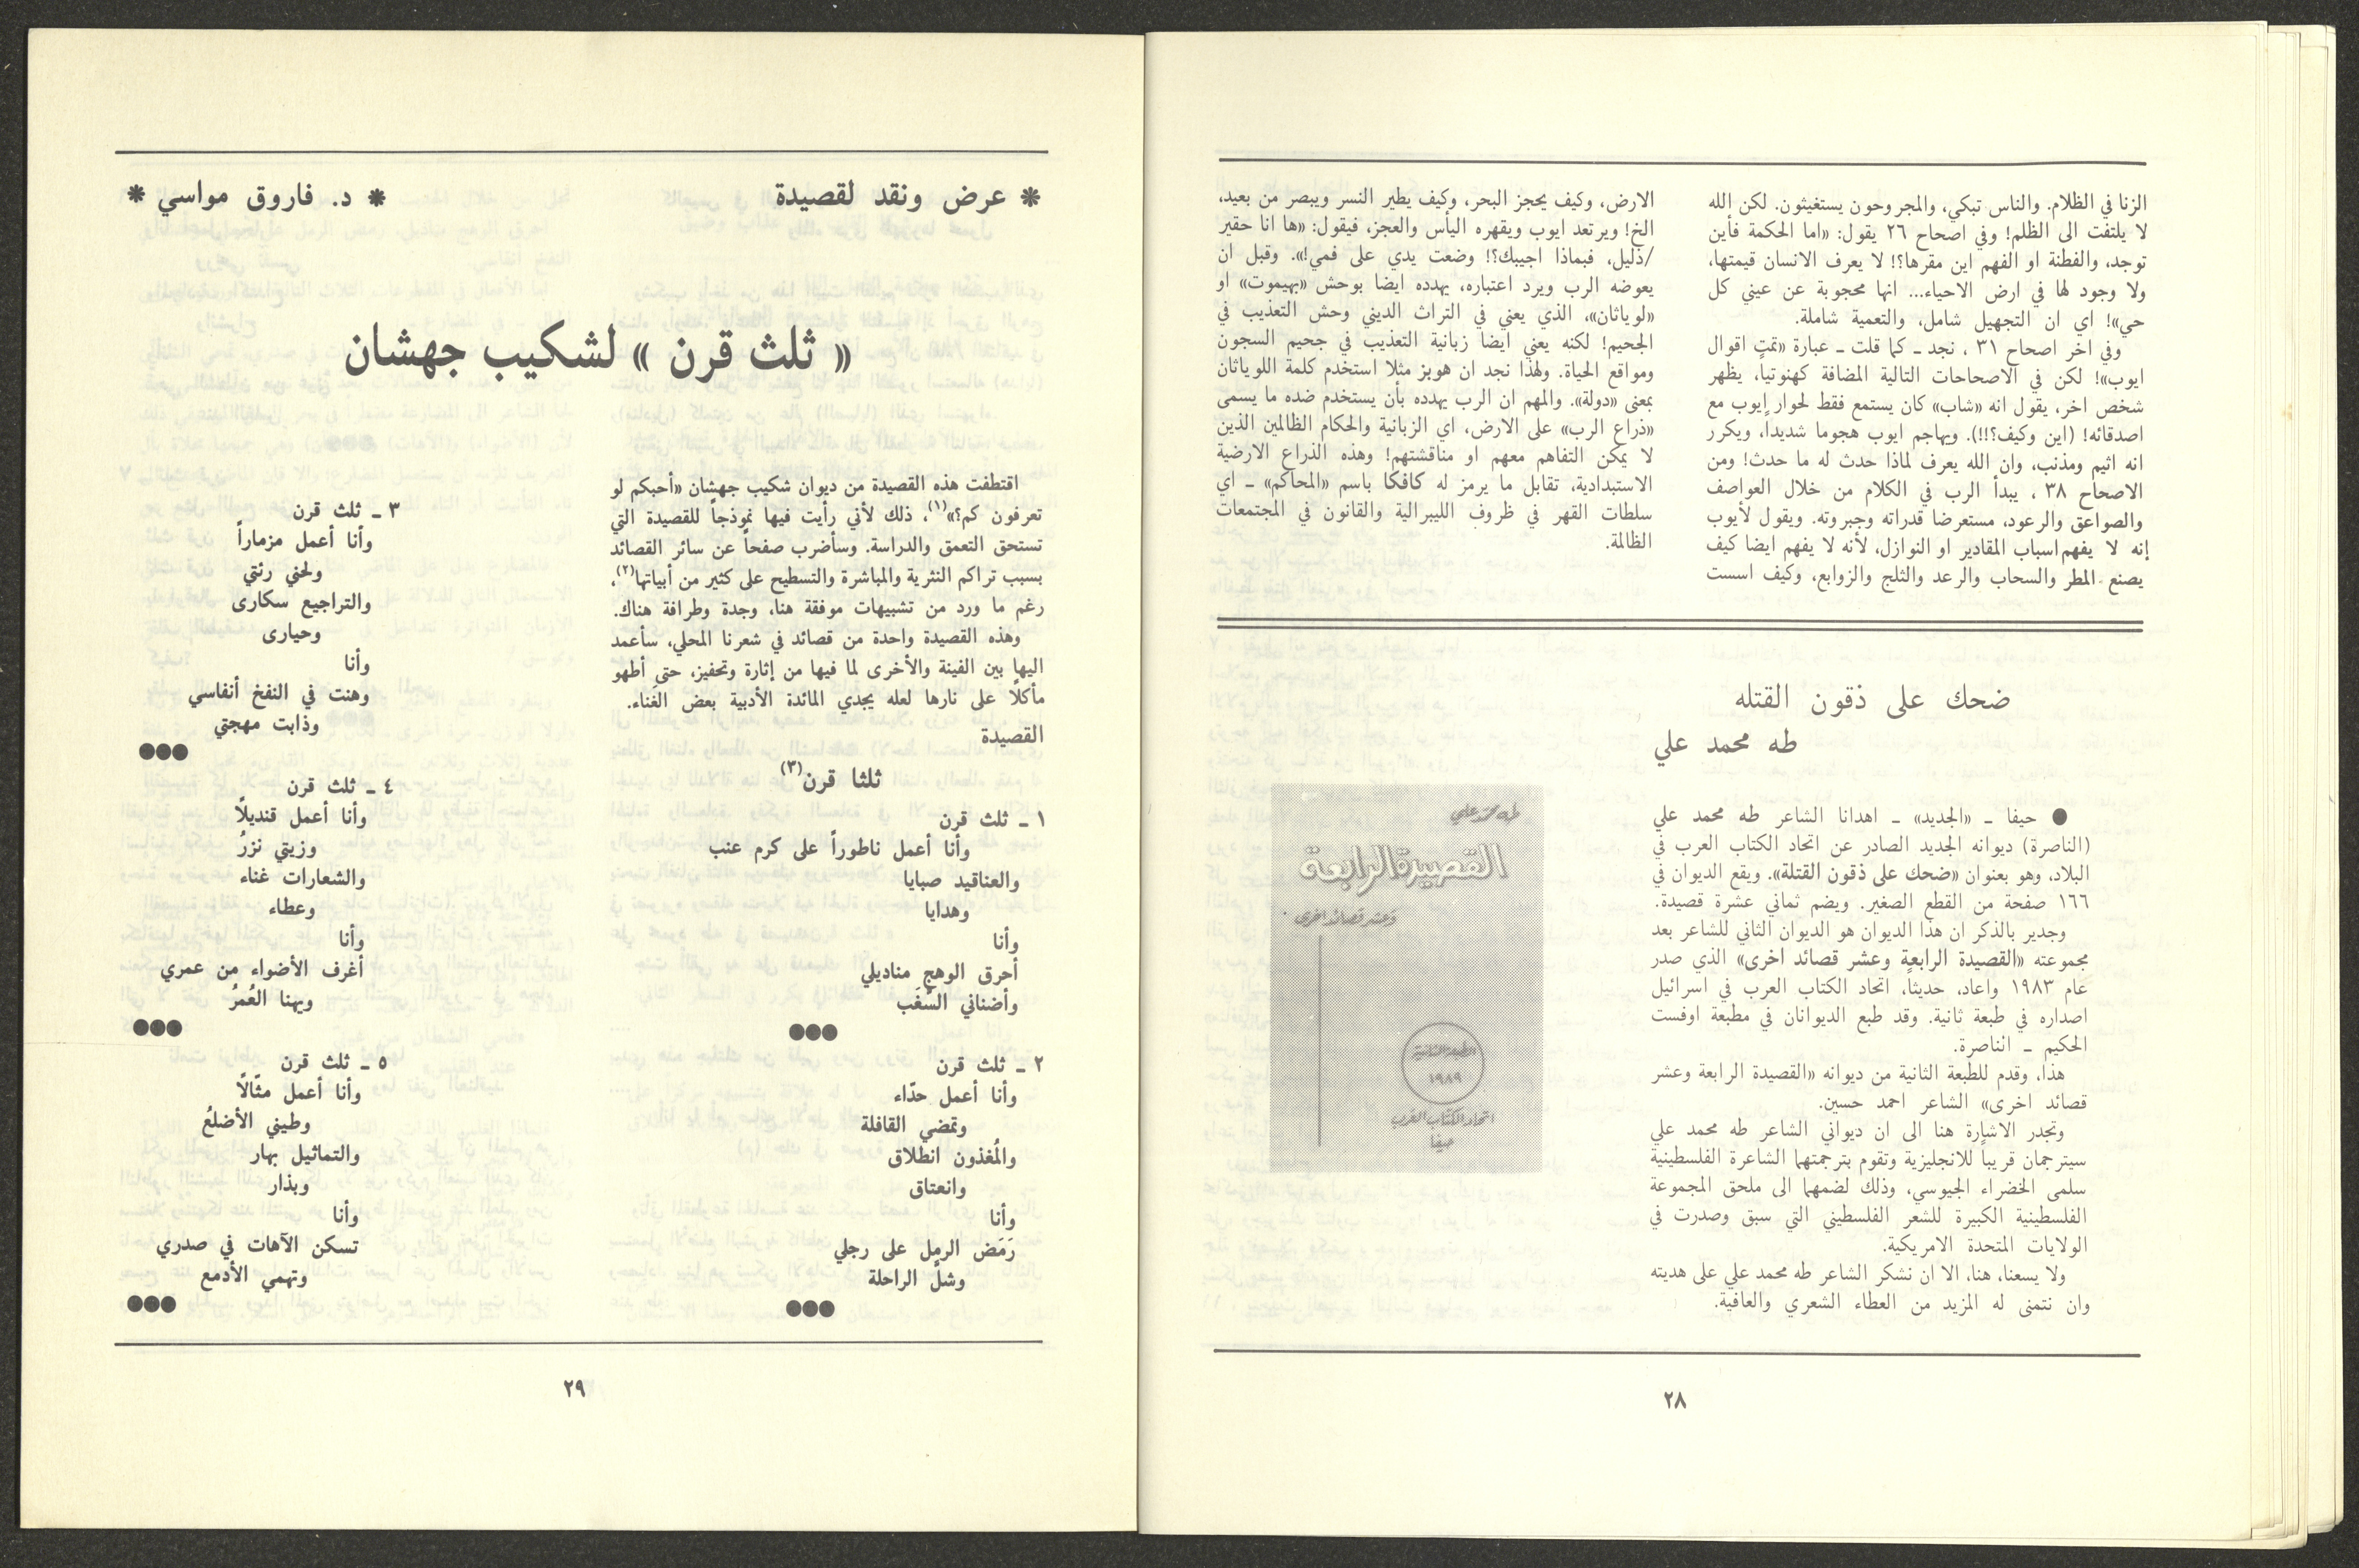 الزنا في الظلام. والناس تبكي، والمجروحون يستغيثون. لكن الله
لا يلتفت الى الظلم! وفي اصحاح ٢٦ يقول: «اما الحكمة فأين
توجد، والفطنة او الفهم اين مقرها؟! لا يعرف الانسان قيمتها،
ولا وجود لها في ارض الاحياء... انها محجوبة عن عيني كل
حي»! اي ان التجهيل شامل، والتعمية شاملة.
وفي اخر اصحاح ٣١ ، نجد ـ كما قلت ـ عبارة «تمت اقوال
ايوب»! لكن في الاصحاحات التالية المضافة كهنوتياً، يظهر
شخص اخر، يقول انه «شاب» كان يستمع فقط لحوار ايوب مع
اصدقائه! (اين وكيف؟!!). ويهاجم ايوب هجوما شديداً، ويكرر
انه اثيم ومذنب، وان الله يعرف لماذا حدث له ما حدث! ومن
الاصحاح ٣٨ ، يبدأ الرب في الكلام من خلال العواصف
والصواعق والرعود، مستعرضا قدراته وجبروته. ويقول لأيوب
إنه لا يفهم اسباب المقادير او النوازل، لأنه لا يفهم ايضا كيف
يصنع المطر والسحاب والرعد والثلج والزوابع، وكيف اسست
الارض، وكيف يحجز البحر، وكيف يطير النسر ويبصر من بعيد،
الخ! ويرتعد ايوب ويقهره اليأس والعجز، فيقول: «ها انا حقير
/ذليل، فبماذا اجيبك؟! وضعت يدي على فمي!». وقبل ان
يعوضه الرب ويرد اعتباره، يهدده ايضا بوحش «بهيموت» او
«لوياثان»، الذي يعني في التراث الديني وحش التعذيب في
الجحيم! لكنه يعني ايضا زبانية التعذيب في جحيم السجون
ومواقع الحياة. ولهذا نجد ان هوبز مثلا استخدم كلمة اللوياثان
بمعنى «دولة». والمهم ان الرب يهدده بأن يستخدم ضده ما يسمى
«ذراع الرب» على الارض، اي الزبانية والحكام الظالمين الذين
لا يمكن التفاهم معهم او مناقشتهم! وهذه الذراع الارضية
الاستبدادية، تقابل ما يرمز له كافكا باسم «المحاكم» ـ اي
سلطات القهر في ظروف الليبرالية والقانون في المجتمعات
الظالمة.
ضحك على ذقون القتله
طه محمد علي
● حيفا ـ «الجديد» ـ اهدانا الشاعر طه محمد علي
(الناصرة) ديوانه الجديد الصادر عن اتحاد الكتاب العرب في
البلاد، وهو بعنوان «ضحك على ذقون القتلة». ويقع الديوان في
١٦٦ صفحة من القطع الصغير. ويضم ثماني عشرة قصيدة.
وجدير بالذكر ان هذا الديوان هو الديوان الثاني للشاعر بعد
مجموعته «القصيدة الرابعة وعشر قصائد اخرى» الذي صدر
عام ١٩٨٣ واعاد، حديثاً، اتحاد الكتاب العرب في اسرائيل
اصداره في طبعة ثانية. وقد طبع الديوانان في مطبعة اوفست
الحكيم ـ الناصرة.
هذا، وقدم للطبعة الثانية من ديوانه «القصيدة الرابعة وعشر
قصائد اخرى» الشاعر احمد حسين.
وتجدر الاشارة هنا الى ان ديواني الشاعر طه محمد علي
سيترجمان قريباً للانجليزية وتقوم بترجمتهما الشاعرة الفلسطينية
سلمى الخضراء الجيوسي، وذلك لضمهما الى ملحق المجموعة
الفلسطينية الكبيرة للشعر الفلسطيني التي سبق وصدرت في
الولايات المتحدة الامريكية.
ولا يسعنا، هنا، الا ان نشكر الشاعر طه محمد علي على هديته
وان نتمنى له المزيد من العطاء الشعري والعافية.
طه محمد علي
القصيدة الرابعة
وعشر قصائد اخرى
الطبعة الثانية
١٩٨٩
اتحاد الكتاب العرب
حيفا
٢٨
* عرض ونقد لقصيدة
* د. فاروق مواسي *
« ثلث قرن » لشكيب جهشان
اقتطفت هذه القصيدة من ديوان شكيب جهشان «أحبكم لو
تعرفون كم؟»(١)، ذلك لأني رأيت فيها نموذجاً للقصيدة التي
تستحق التعمق والدراسة. وسأضرب صفحاً عن سائر القصائد
بسبب تراكم النثرية والمباشرة والتسطيح على كثير من أبياتها(٢)،
رغم ما ورد من تشبيهات موفقة هنا، وجدة وطرافة هناك.
وهذه القصيدة واحدة من قصائد في شعرنا المحلي، سأعمد
اليها بين الفينة والأخرى لما فيها من إثارة وتحفيز، حتى أطهو
مأكلًا على نارها لعله يجدي المائدة الأدبية بعض الغَناء.
القصيدة
ثلثا قرن(٣)
١ ـ ثلث قرن
وأنا أعمل ناطوراً على كرم عنب
والعناقيد صبايا
وهدايا
وأنا
أحرق الوهج مناديلي
وأضناني السَّغَب
●●●
٢ ـ ثلث قرن
وأنا أعمل حدّاء
وتمضي القافلة
والمُغذون انطلاق
وانعتاق
وأنا
رَمَض الرمل على رجلي
وشلَّ الراحلة
●●●
٣ ـ ثلث قرن
وأنا أعمل مزماراً
ولحني رئتي
والتراجيع سكارى
وحيارى
وأنا
وهنت في النفخ أنفاسي
وذابت مهجتي
●●●
٤ ـ ثلث قرن
وأنا أعمل قنديلًا
وزيتي نزرُ
والشعارات غناء
وعطاء
وأنا
أغرف الأضواء من عمري
ويهنا العُمرُ
●●●
٥ ـ ثلث قرن
وأنا أعمل مثّالًا
وطيني الأضلعُ
والتماثيل بهار
وبذار
وأنا
تسكن الآهات في صدري
وتهمي الأدمع
●●●
٢٩